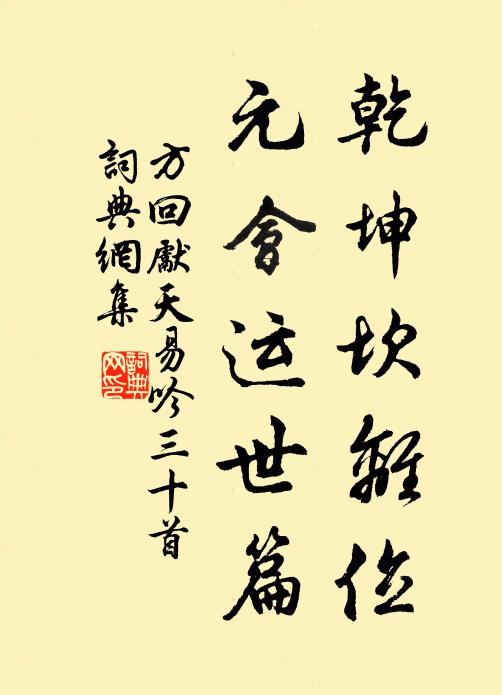 乾坤坎離位
元會运世篇
方回獻天易吟三十首
詞典網集
詞典網印